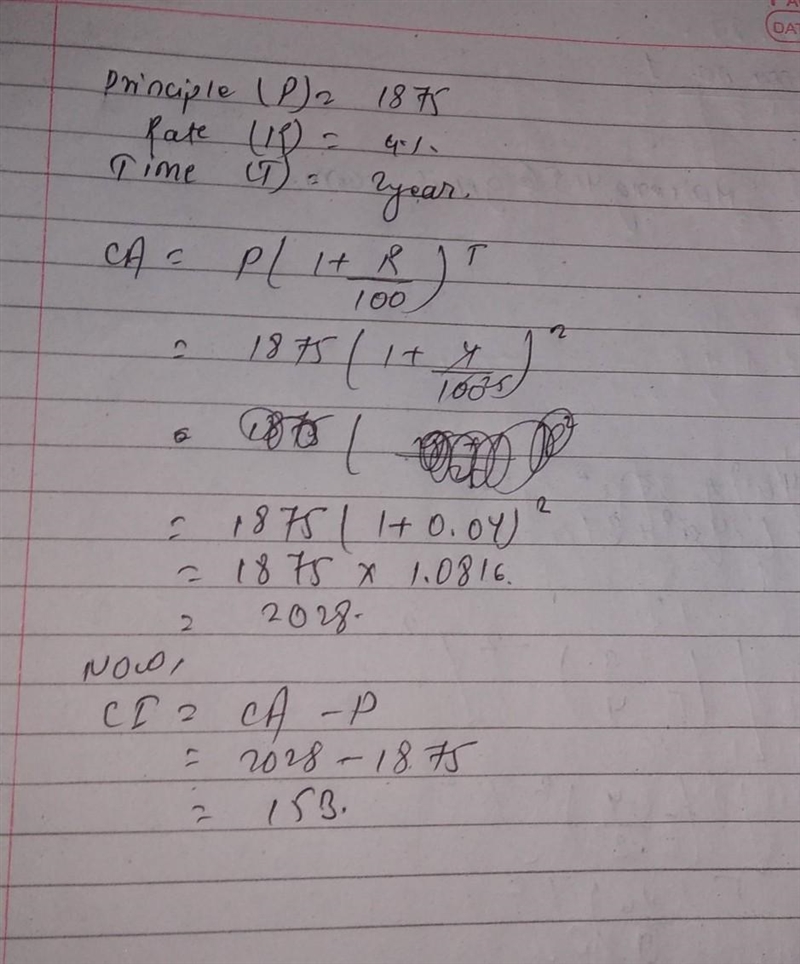 DAT
Principle (P) = 1875
Rate (R) = 4%
Time (T) = 2year.
CA = P(1+R/100)^T
= 1875(1+4/100)^2
= 1875(
= 1875(1+0.04)^2
= 1875 x 1.0816.
= 2028.
Now,
CI = CA - P
= 2028 - 1875
= 153.